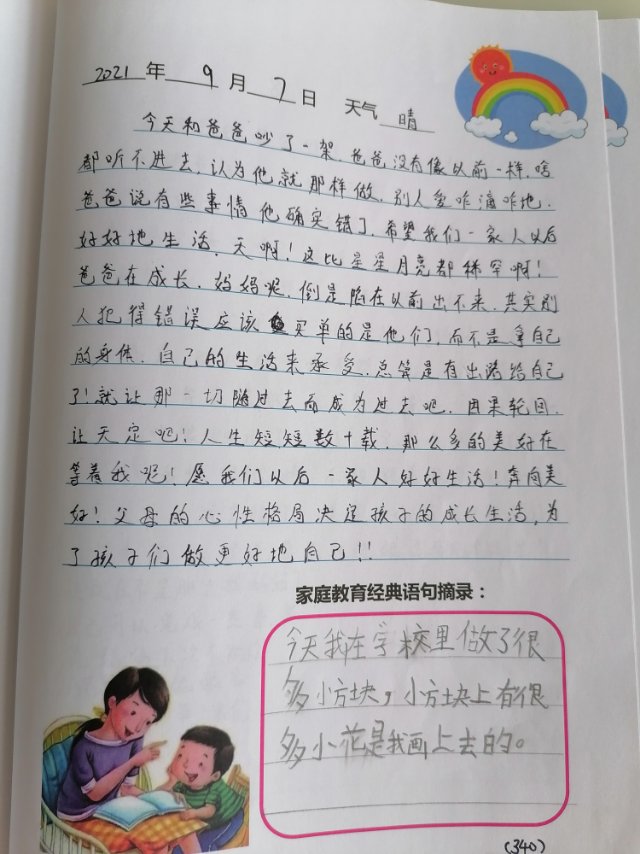 2021 年 9 月 7 日 天气 晴
今天和爸爸吵了一架.爸爸没有像以前一样.啥
都听不进去.认为他就那样做.别人爱咋滴咋地.
爸爸说有些事情他确实错了.希望我们一家人以后
好好地生活.天啊!这比星星月亮都稀罕啊!
爸爸在成长.妈妈呢.倒是陷在以前出不来.其实别
人犯得错误应该买单的是他们.而不是拿自己
的身体.自己的生活来承受.总算是有出路给自己
了!就让那一切随过去而成为过去吧.因果轮回.
让天定吧!人生短短数十载.那么多的美好在
等着我呢!愿我们以后一家人好好生活!奔向美
好!父母的心性格局决定孩子的成长生活,为
了孩子们做更好地自己!!
家庭教育经典语句摘录:
今天我在学校里做了很
多小方块,小方块上有很
多小花是我画上去的。
(340)